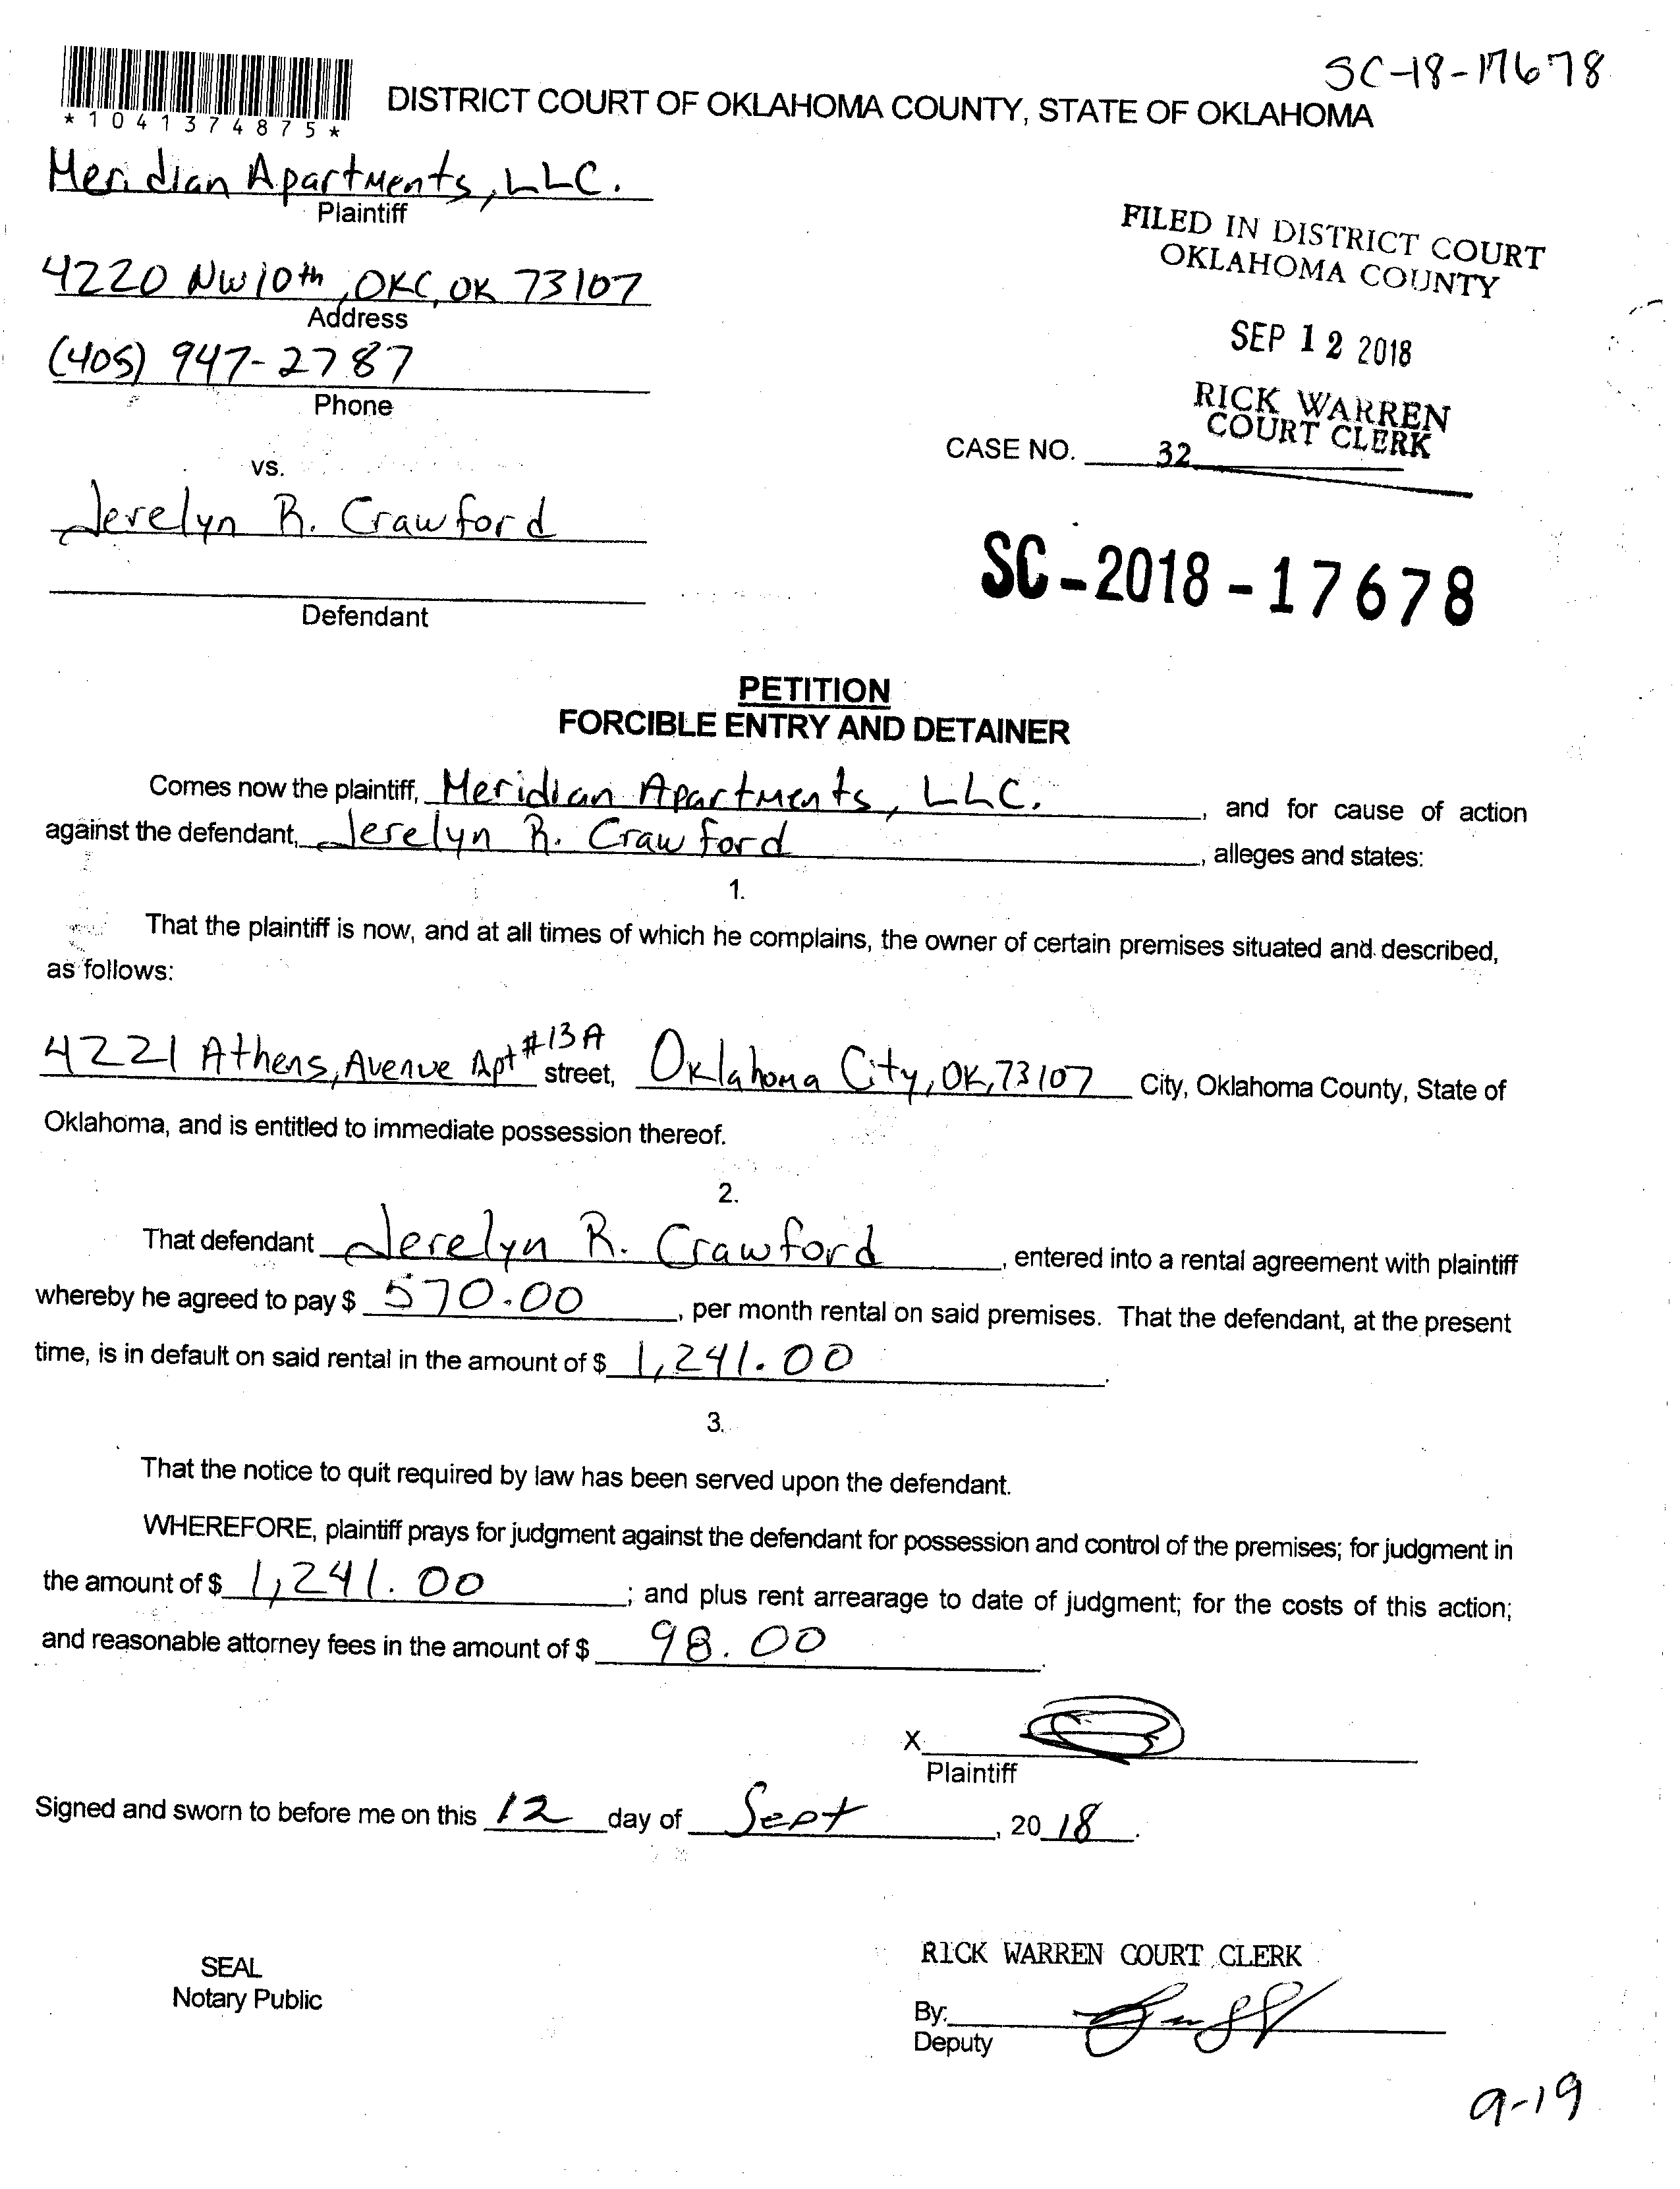 SC-18-17678
*1041374875*
DISTRICT COURT OF OKLAHOMA COUNTY, STATE OF OKLAHOMA
Meridian Apartments, LLC.
Plaintiff
4220 NW 10th, OKC, OK 73107
Address
(405) 947-2787
Phone
FILED IN DISTRICT COURT
OKLAHOMA COUNTY
SEP 12 2018
RICK WARREN
COURT CLERK
CASE NO. 32
vs.
Jerelyn R. Crawford
Defendant
SC-2018-17678
PETITION
FORCIBLE ENTRY AND DETAINER
Comes now the plaintiff, Meridian Apartments, LLC. , and for cause of action
against the defendant, Jerelyn R. Crawford , alleges and states:
1.
That the plaintiff is now, and at all times of which he complains, the owner of certain premises situated and described,
as follows:
4221 Athens, Avenue Apt #13A street, Oklahoma City, OK, 73107 City, Oklahoma County, State of
Oklahoma, and is entitled to immediate possession thereof.
2.
That defendant Jerelyn R. Crawford , entered into a rental agreement with plaintiff
whereby he agreed to pay $ 570.00 , per month rental on said premises. That the defendant, at the present
time, is in default on said rental in the amount of $ 1,241.00 .
3.
That the notice to quit required by law has been served upon the defendant.
WHEREFORE, plaintiff prays for judgment against the defendant for possession and control of the premises; for judgment in
the amount of $ 1,241.00 ; and plus rent arrearage to date of judgment; for the costs of this action;
and reasonable attorney fees in the amount of $ 98.00 .
X
Plaintiff
Signed and sworn to before me on this 12 day of Sept , 20 18 .
SEAL
Notary Public
RICK WARREN COURT CLERK
By:
Deputy
9-19